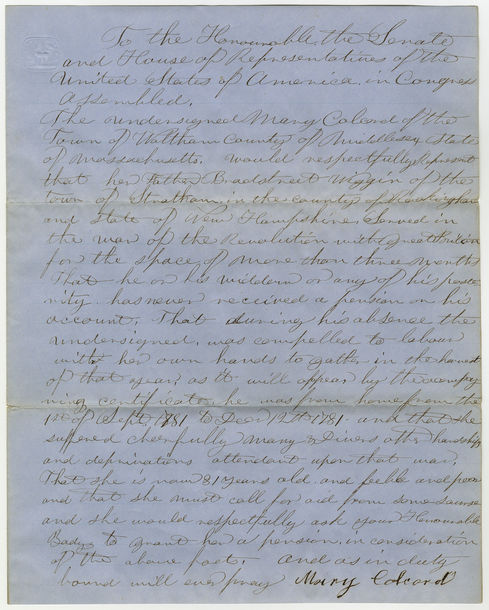 To the Honourable the Senate
and House of Representatives of the
United States of America in Congress
Assembled.
The undersigned Mary Colcord of the
Town of Waltham County of Middlesex State
of Massachusetts. would respectfully represent
that her Father Bradstreet Wiggin of the
town of Stratham, in the county of Rockingham
and State of New Hampshire, Served in
the war of the Revolution with
for the space of more than three months
That he or his widdow or any of his poste
rity has never received a pension on his
account; That during his absence the
undersigned, was compelled to labour
with her own hands to gather in the harvest
of that year; as it will appear by the accompy
ning certificate, he was from home from the
1st of Sept 1781 to Decr 12th 1781 and that she
suffered cheerfully many & Divers other hardships
and deprivations attendant upon that war.
That she is now 81 years old and feeble and poor
and that she must call for aid from some source
and she would respectfully ask your Honourable
Body to grant her a pension in consideration
of the above fact. And as in duty
bound will ever pray Mary Colcord